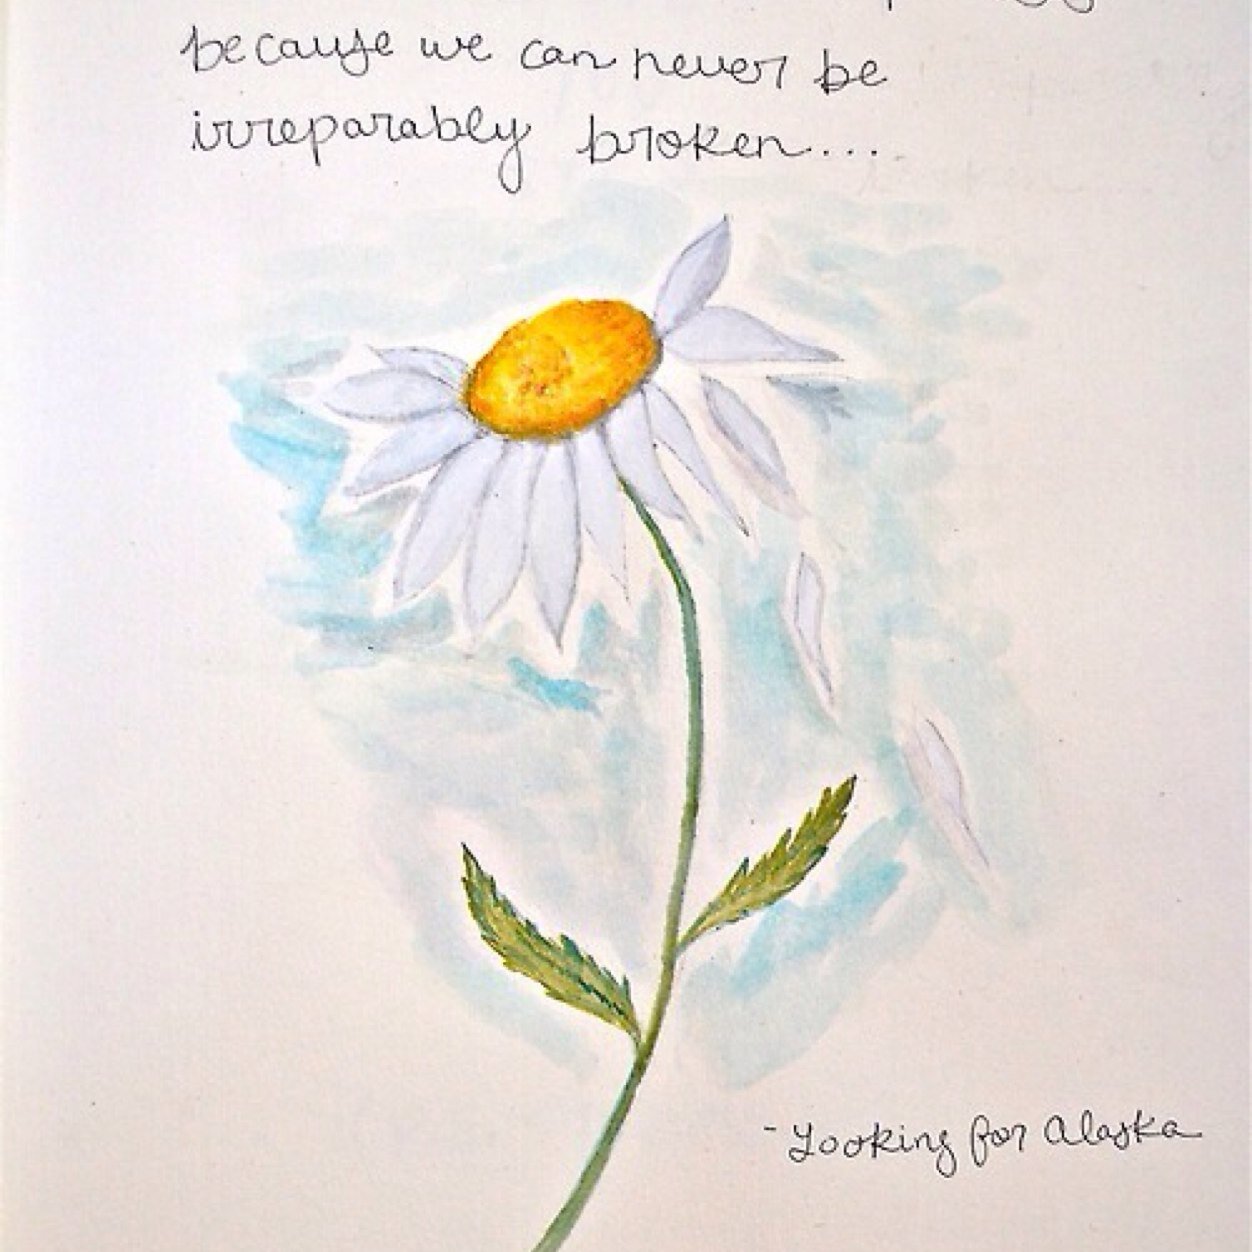 because we can never be
irreparably broken...
- Looking for Alaska